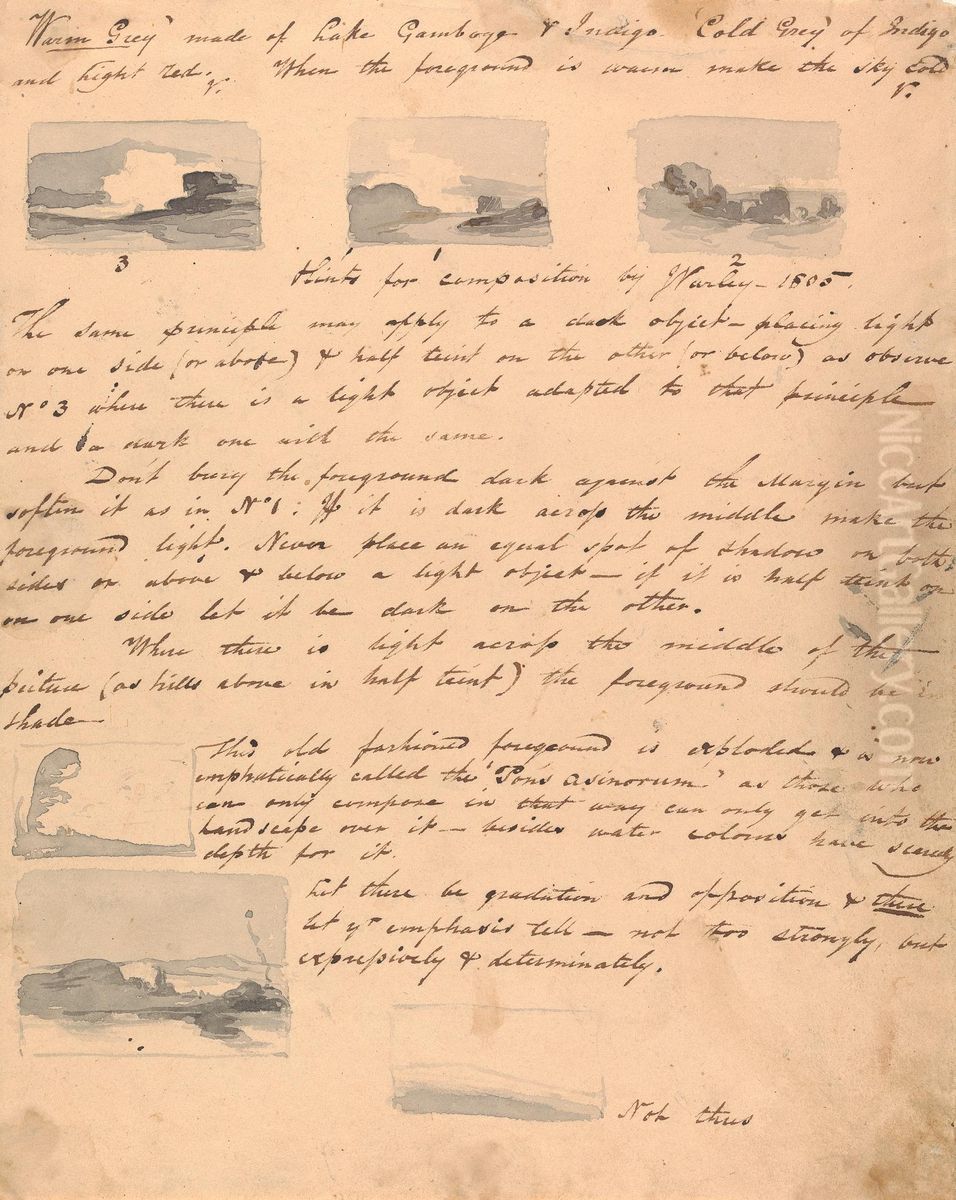 Warm Grey made of Lake Gamboge & Indigo. Cold Grey of Indigo
and Light red. When the foreground is warm make the sky Cold
V. V.
3 1 2
Hints for composition by J Varley - 1805.
The same principle may apply to a dark object - placing light
on one side (or above) & half teint on the other (or below) as observe
No 3 where there is a light object adapted to that principle
and a dark one with the same.
Don't bury the foreground dark against the Margin but
soften it as in No 1: If it is dark across the middle make the
foreground light. Never place an equal spot of shadow on both
sides or above & below a light object - if it is half teint on
on one side let it be dark on the other.
Where there is light across the middle of the
picture (as hills above in half teint) the foreground should be in
shade
This old fashioned foreground is exploded & is now
emphatically called the "Pons asinorum" as those who
can only compose in that way can only get into the
Landscape over it - besides water colours have scarcely
depth for it.
Let there be gradation and opposition & there
let yr emphasis tell - not too strongly, but
expressively & determinately.
Not thus
NiceArtGallery.com